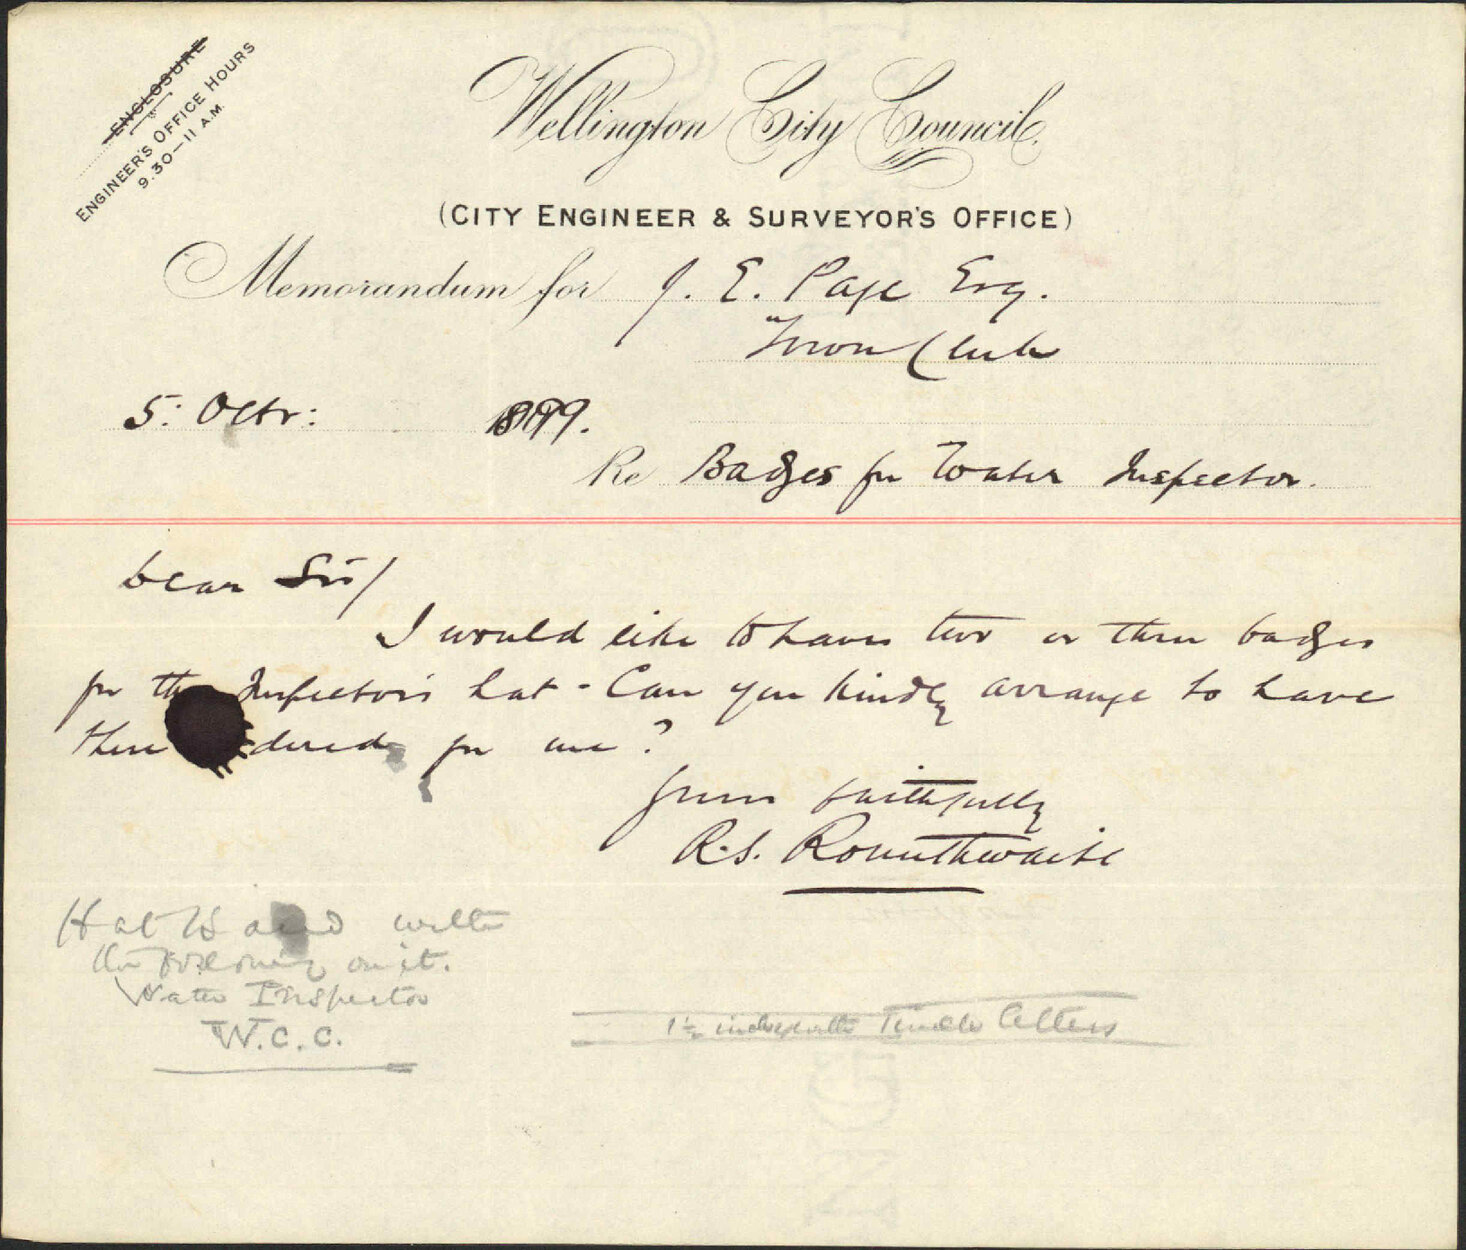 ENCLOSURE
ENGINEER'S OFFICE HOURS
9.30—11 A.M.
Wellington City Council.
(CITY ENGINEER & SURVEYOR'S OFFICE)
Memorandum for J. E. Page Esq.
Town Clerk
5: Octr: 1899.
Re Badges for Water Inspector.
Dear Sir/
I would like to have two or three badges
for the Inspector's hat - Can you kindly arrange to have
these ordered for me?
Yours faithfully
R.S. Rounthwaite
Hat Band with
the following on it.
Water Inspector
W.C.C.
1½ inches letters